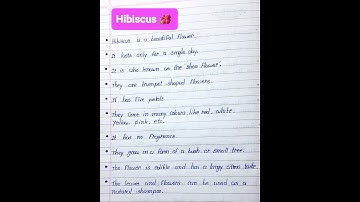 Hibiscus 🌺
Hibiscus is a beautiful flower.
It lasts only for a single day.
It is also known as the shoe flower.
They are trumpet-shaped flowers.
It has five petals.
They come in many colours like red, white
yellow, pink, etc.
It has no fragrance.
They grow in a form of a bush or small tree.
The flower is edible and has a tangy citrus taste.
The leaves and flowers can be used as a
natural shampoo.